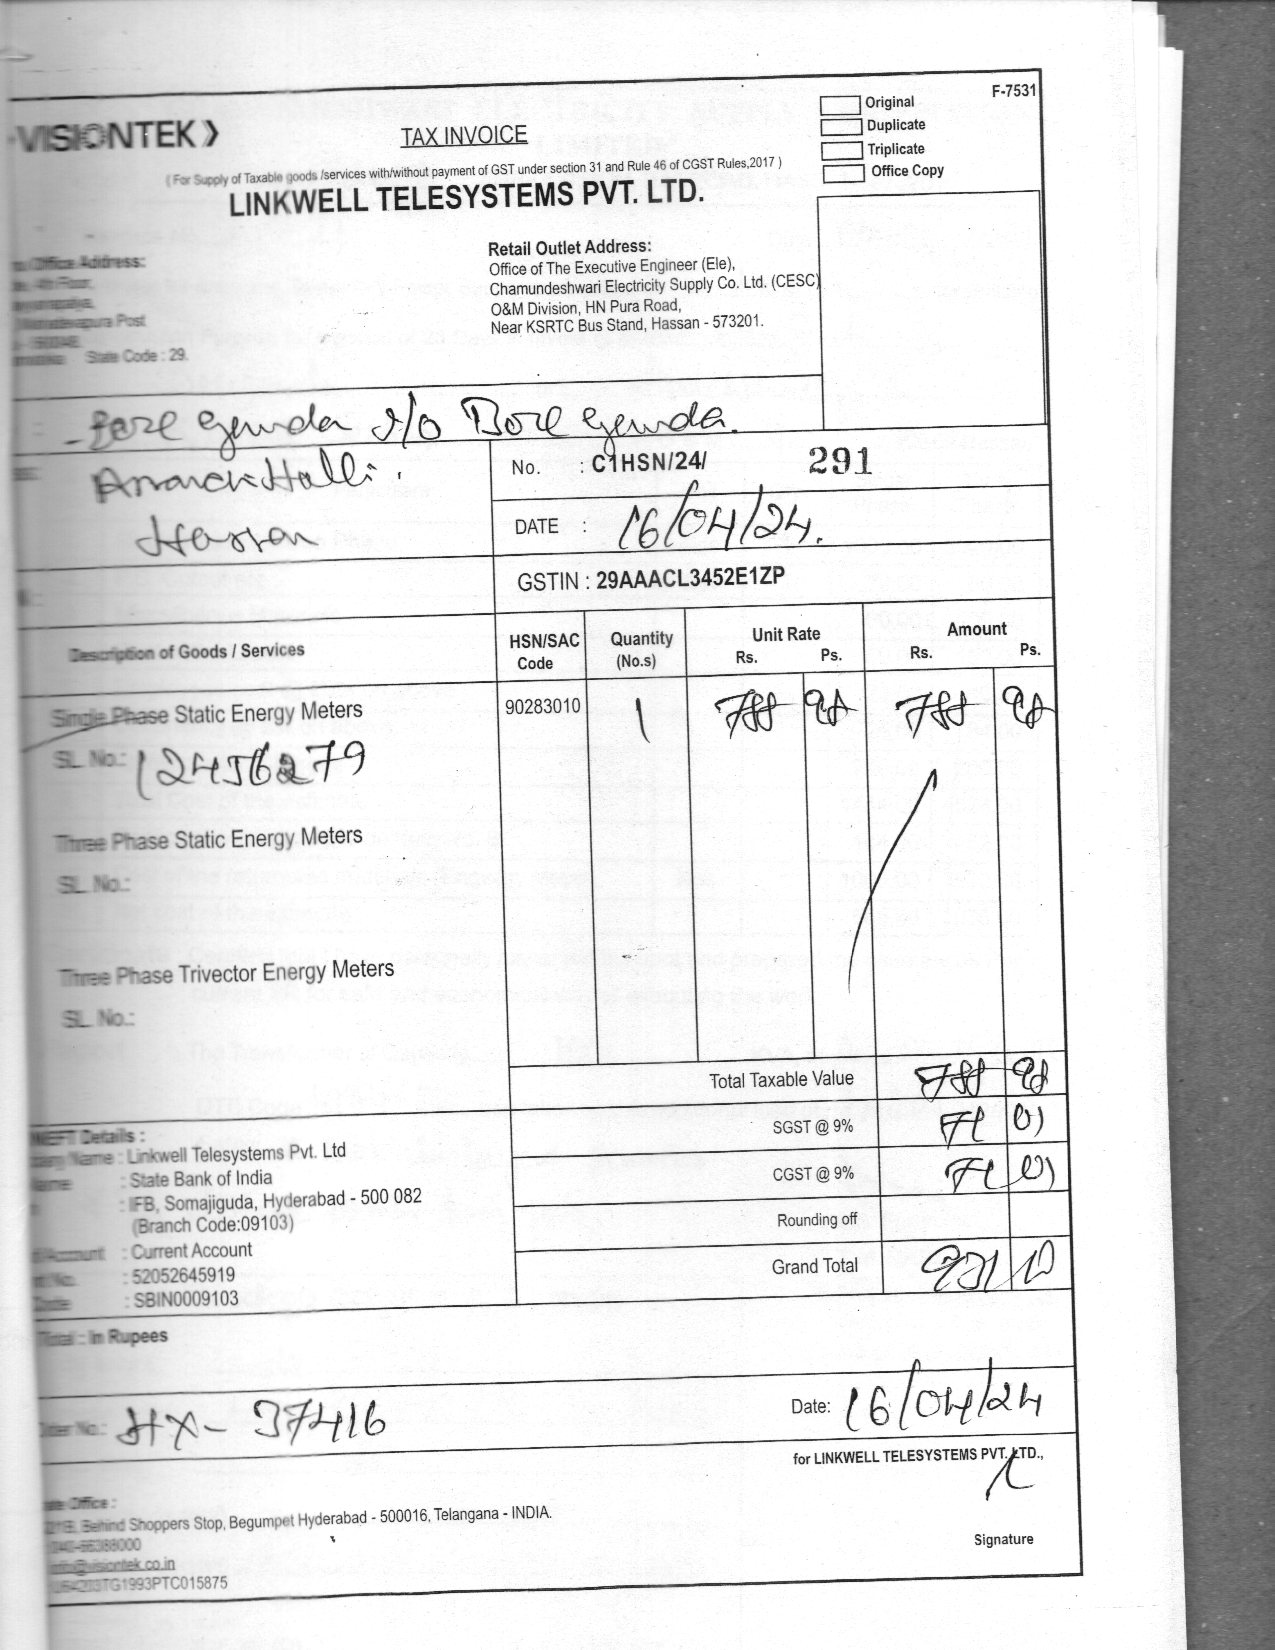 F-7531
Original
Duplicate
Triplicate
Office Copy
VISIONTEK
TAX INVOICE
( For Supply of Taxable goods /services with/without payment of GST under section 31 and Rule 46 of CGST Rules,2017 )
LINKWELL TELESYSTEMS PVT. LTD.
Office Address:
4th Floor,
Post
State Code : 29.
Retail Outlet Address:
Office of The Executive Engineer (Ele),
Chamundeshwari Electricity Supply Co. Ltd. (CESC)
O&M Division, HN Pura Road,
Near KSRTC Bus Stand, Hassan - 573201.
gowda S/O Bore gowda.
Hassan
No. : C1HSN/24/ 291
DATE : 16/04/24.
GSTIN : 29AAACL3452E1ZP
Description of Goods / Services HSN/SAC Code Quantity (No.s) Unit Rate Rs. Ps. Amount Rs. Ps.
Single Phase Static Energy Meters 90283010 1 788
SL. No.: 12456279
Three Phase Static Energy Meters
SL. No.:
Three Phase Trivector Energy Meters
SL. No.:
Total Taxable Value 788
SGST @ 9% 71 01
CGST @ 9% 71 01
Rounding off
Grand Total 931 10
NEFT Details :
Name : Linkwell Telesystems Pvt. Ltd
Name : State Bank of India
: IFB, Somajiguda, Hyderabad - 500 082
(Branch Code:09103)
Account : Current Account
No. : 52052645919
Code : SBIN0009103
Total : In Rupees
Order No.: HX- 37416
Date: 16/04/24
for LINKWELL TELESYSTEMS PVT. LTD.,
Signature
Office :
Behind Shoppers Stop, Begumpet Hyderabad - 500016, Telangana - INDIA.
040-66388000
info@visiontek.co.in
TG1993PTC015875